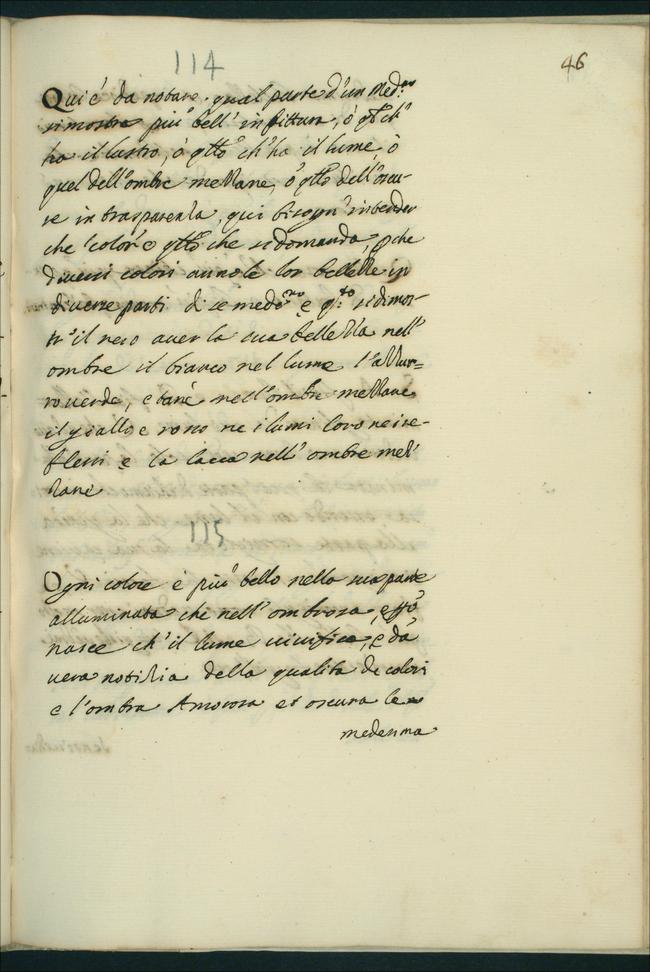 114
46
Qui é da notare, qual parte d'un med.mo
si mostra piu bell' in pittura, ò qto ch'
ha il lustro, ò qtto ch'ha il lume, ò
quel dell'ombre mezzane, ò qtto dell'oscu-
re in trasparenza, qui bisogn' intender
che 'color' è qtto che si domanda, p che
diversi colori anno le lor bellezze in
diverse parti di se medemo, e qsto si dimos-
tr' il nero aver la sua bellezza nell'
ombre il bianco nel lume l'azzur=
ro verde, e tanè nell'ombre mezzane
il giallo e rosso ne i lumi l'oro ne i re-
flessi e la lacca nell' ombre mez-
zane
115
Ogni colore è piu bello nella sua parte
alluminata che nell' ombrosa, e qsto
nasce ch' il lume vivifica, e dà
vera notizia della qualita de colori
e l'ombra Amorza et oscura la
medesima